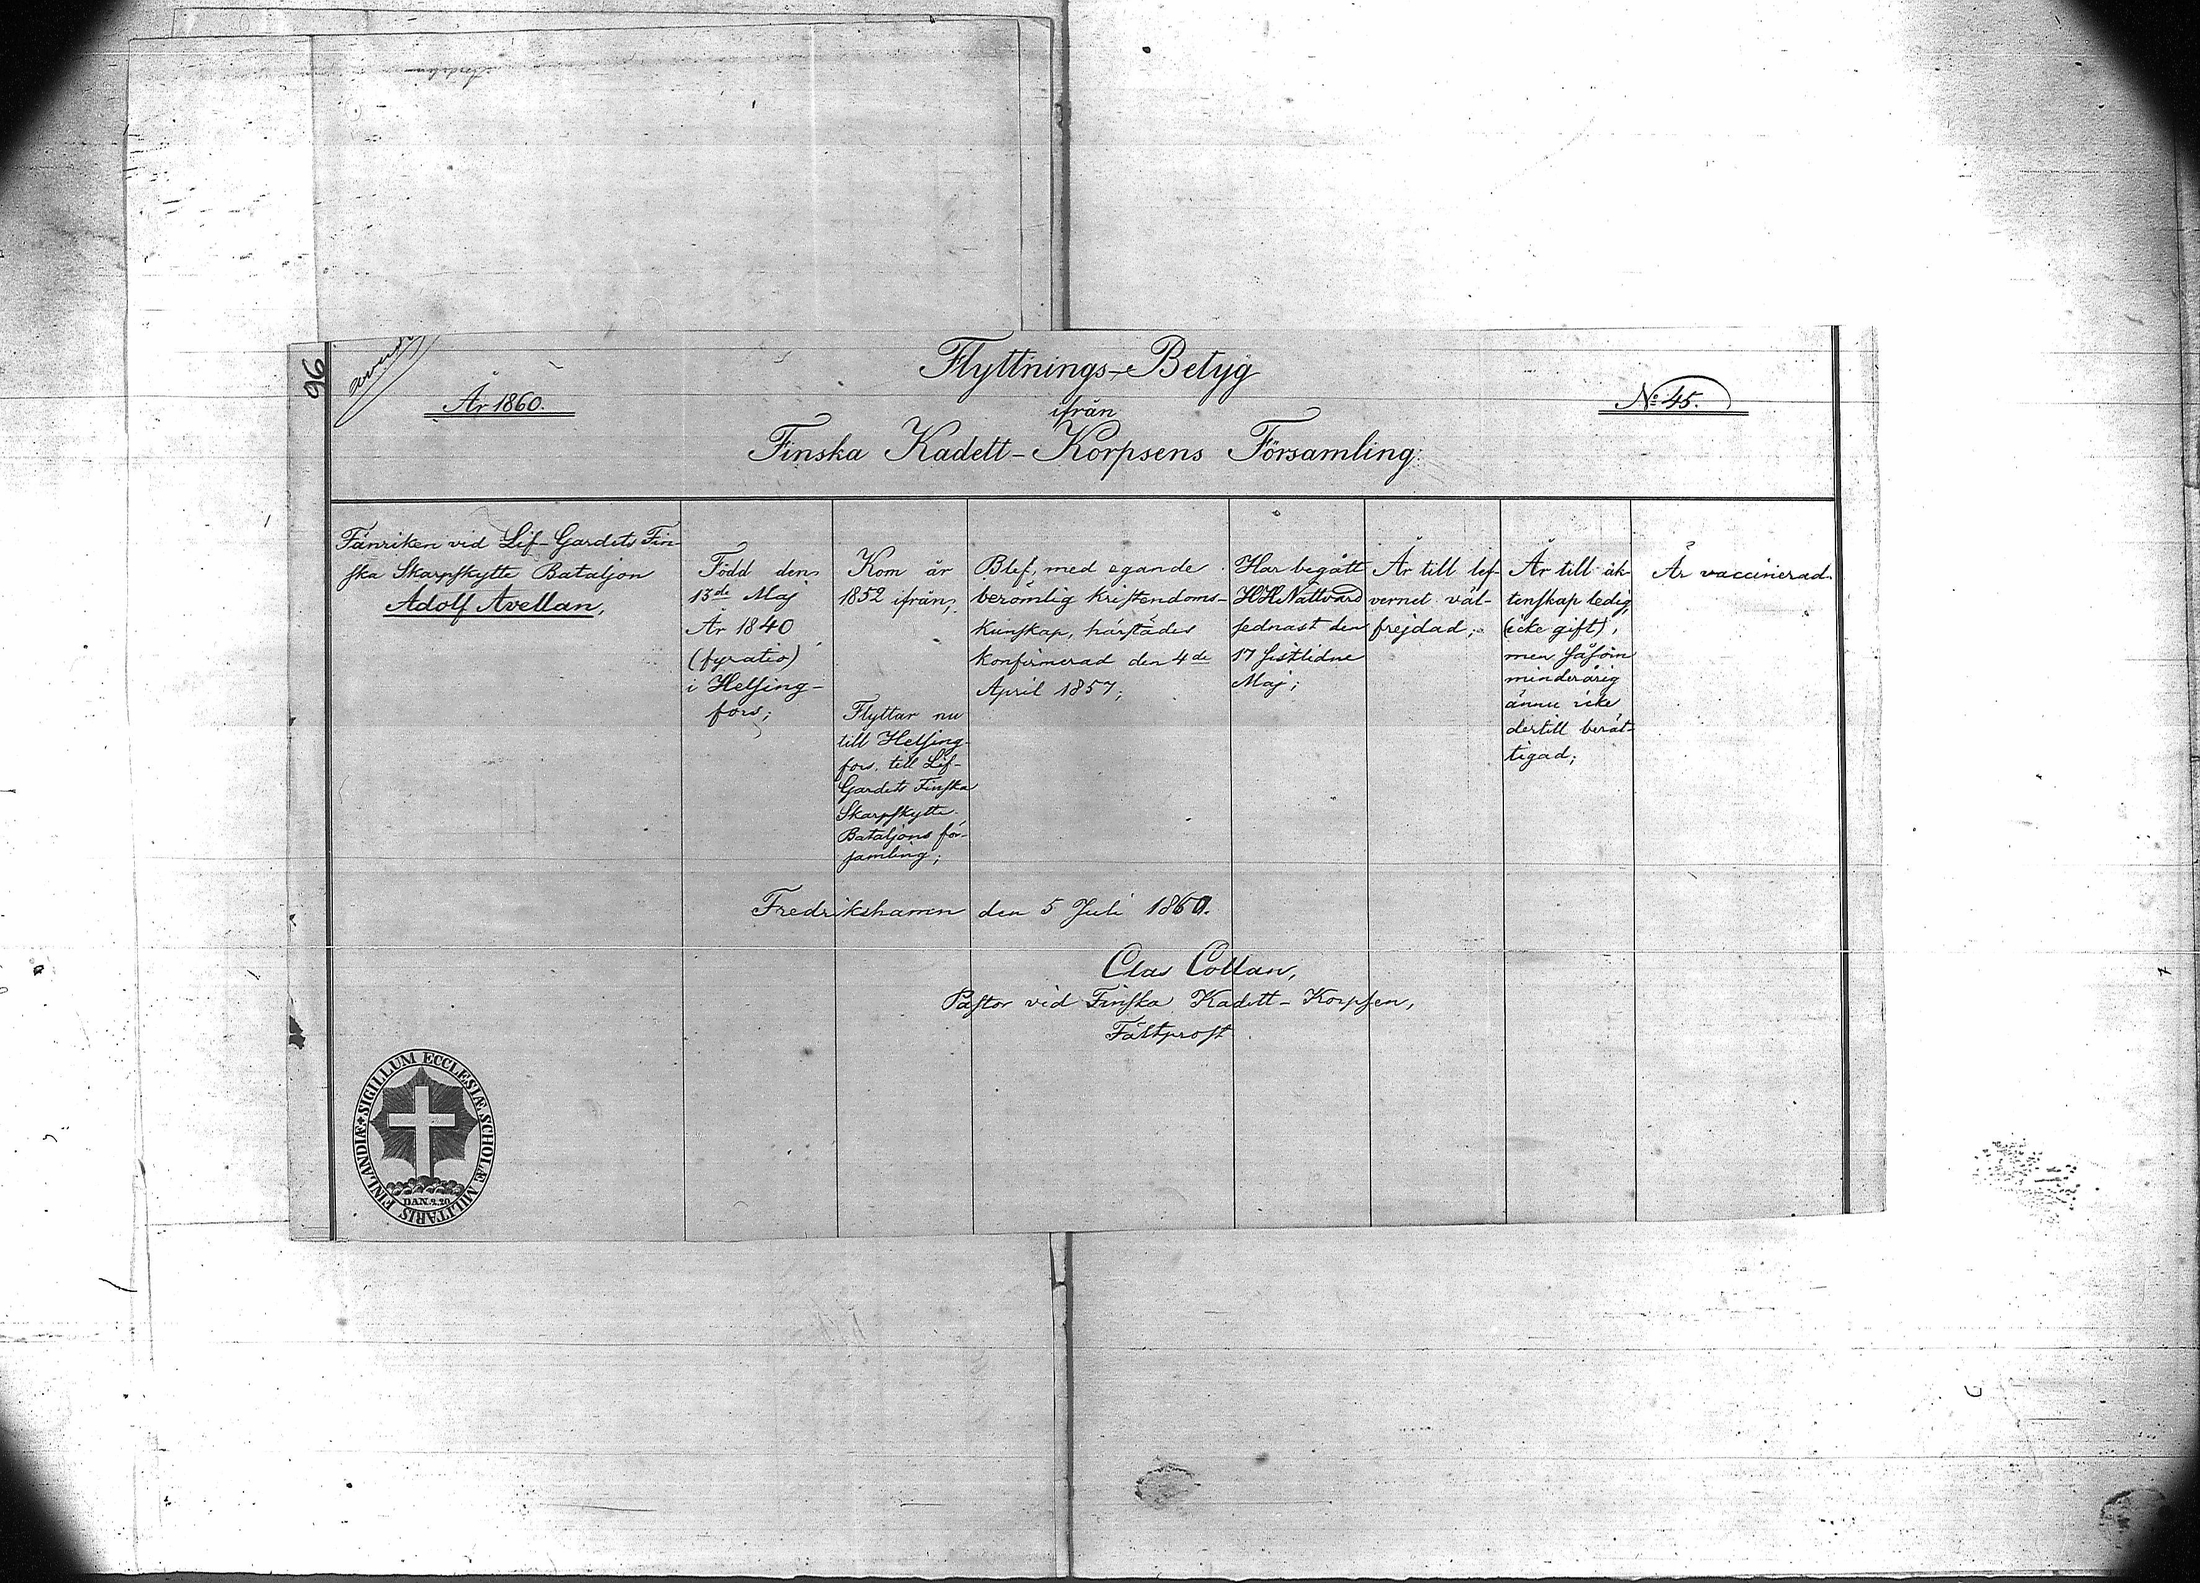 96
År 1860.
Flyttnings-Betyg
ifrån
Finska Kadett-Korpsens Församling.
No 45.
Fänriken vid Lif-Gardets Fin-
ska Skarpskytte Bataljon
Adolf Avellan,
Född den
13de Maj
År 1840
(fyratio)
i Helsing-
fors;
Kom år
1852 ifrån,
Flyttar nu
till Helsing-
fors, till Lif-
Gardets Finska
Skarpskytte
Bataljons för-
samling;
Blef, med egande
berömlig kristendoms-
kunskap, härstädes
konfirmerad den 4de
April 1857;
Har begått
H.H. Nattvard
sednast den
17 sistlidne
Maj;
Är till lef-
vernet väl-
frejdad;
Är till äk-
tenskap ledig
(icke gift),
men såsom
minderårig
ännu icke
dertill berät-
tigad;
Är vaccinerad.
Fredrikshamn den 5 Juli 1860.
Clas Collan,
Pastor vid Finska Kadett-Korpsen,
Fältprost
SIGILLUM ECCLESIÆ SCHOLÆ MILITARIS FINLANDIÆ
DAN. 2.20